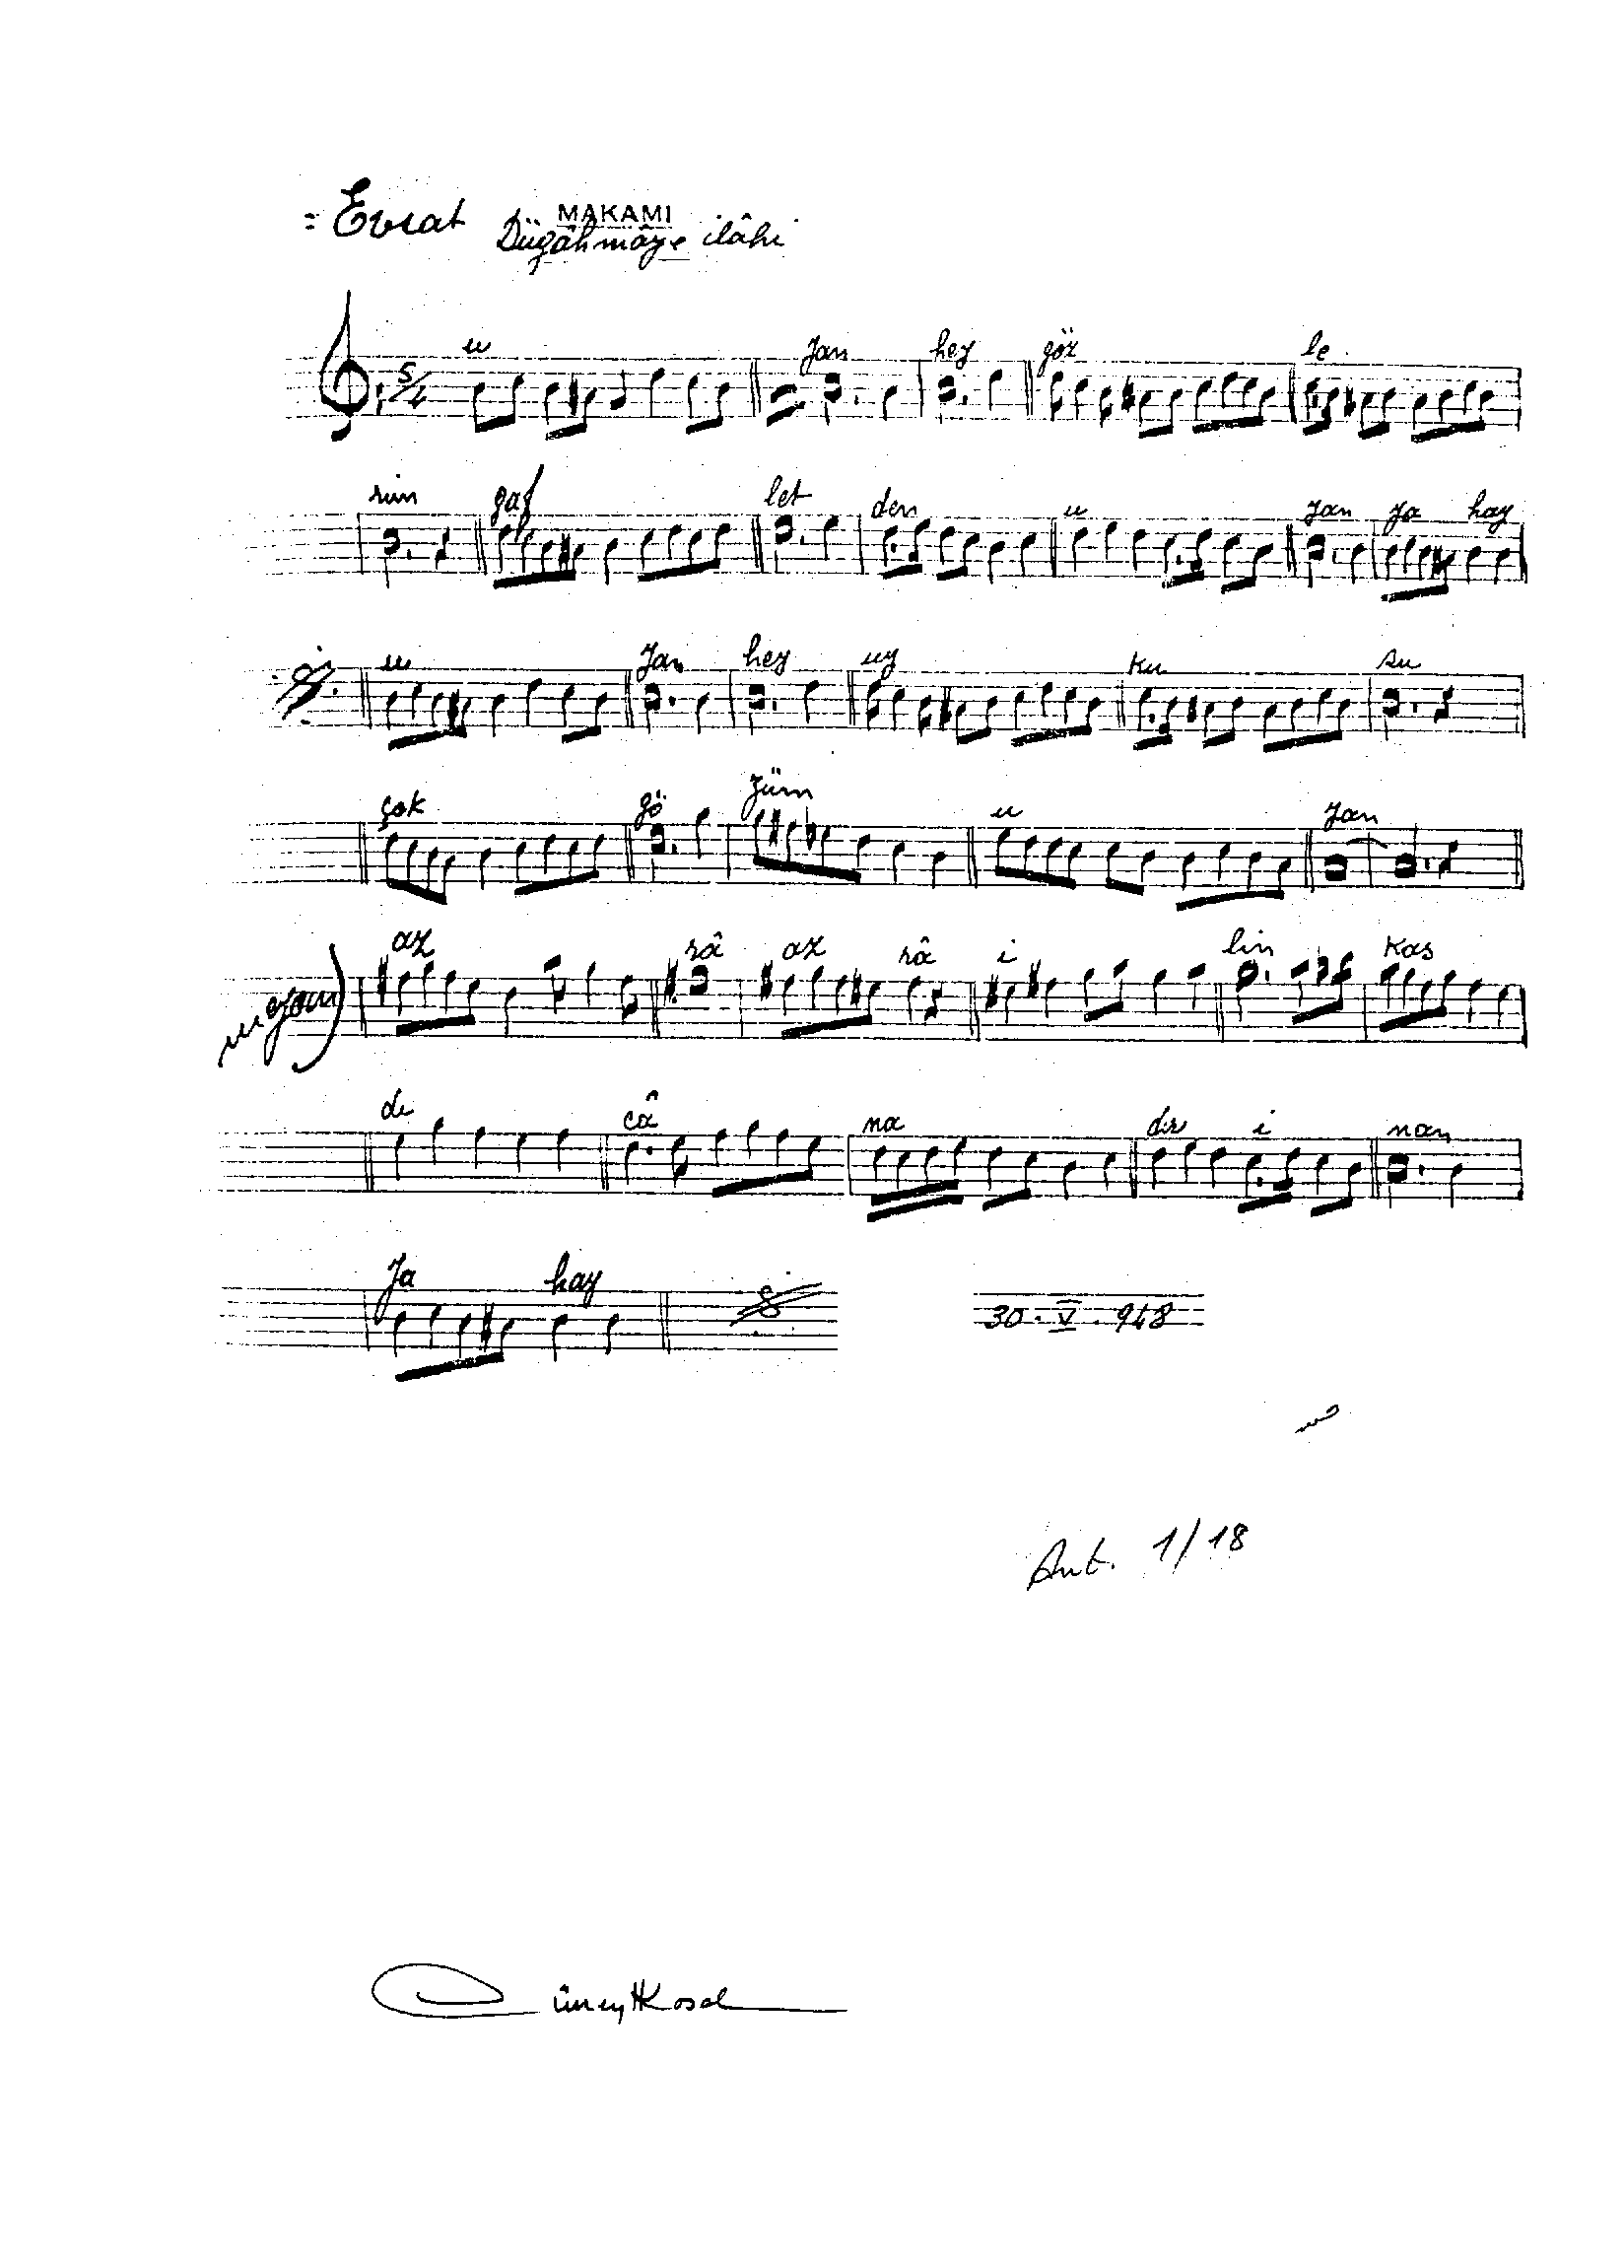 = Evsat
MAKAMI
Dügâhmâye ilâhi
5/4
u yan hey göz le
rim gaf let den u yan ya hay
u yan hey uy ku su
çok gö züm u yan
uyan) az râ az râ i lin kas
di câ na dır i nan
ya hay
30. V. 948
Ant. 1/18
Cüneyt Kosal